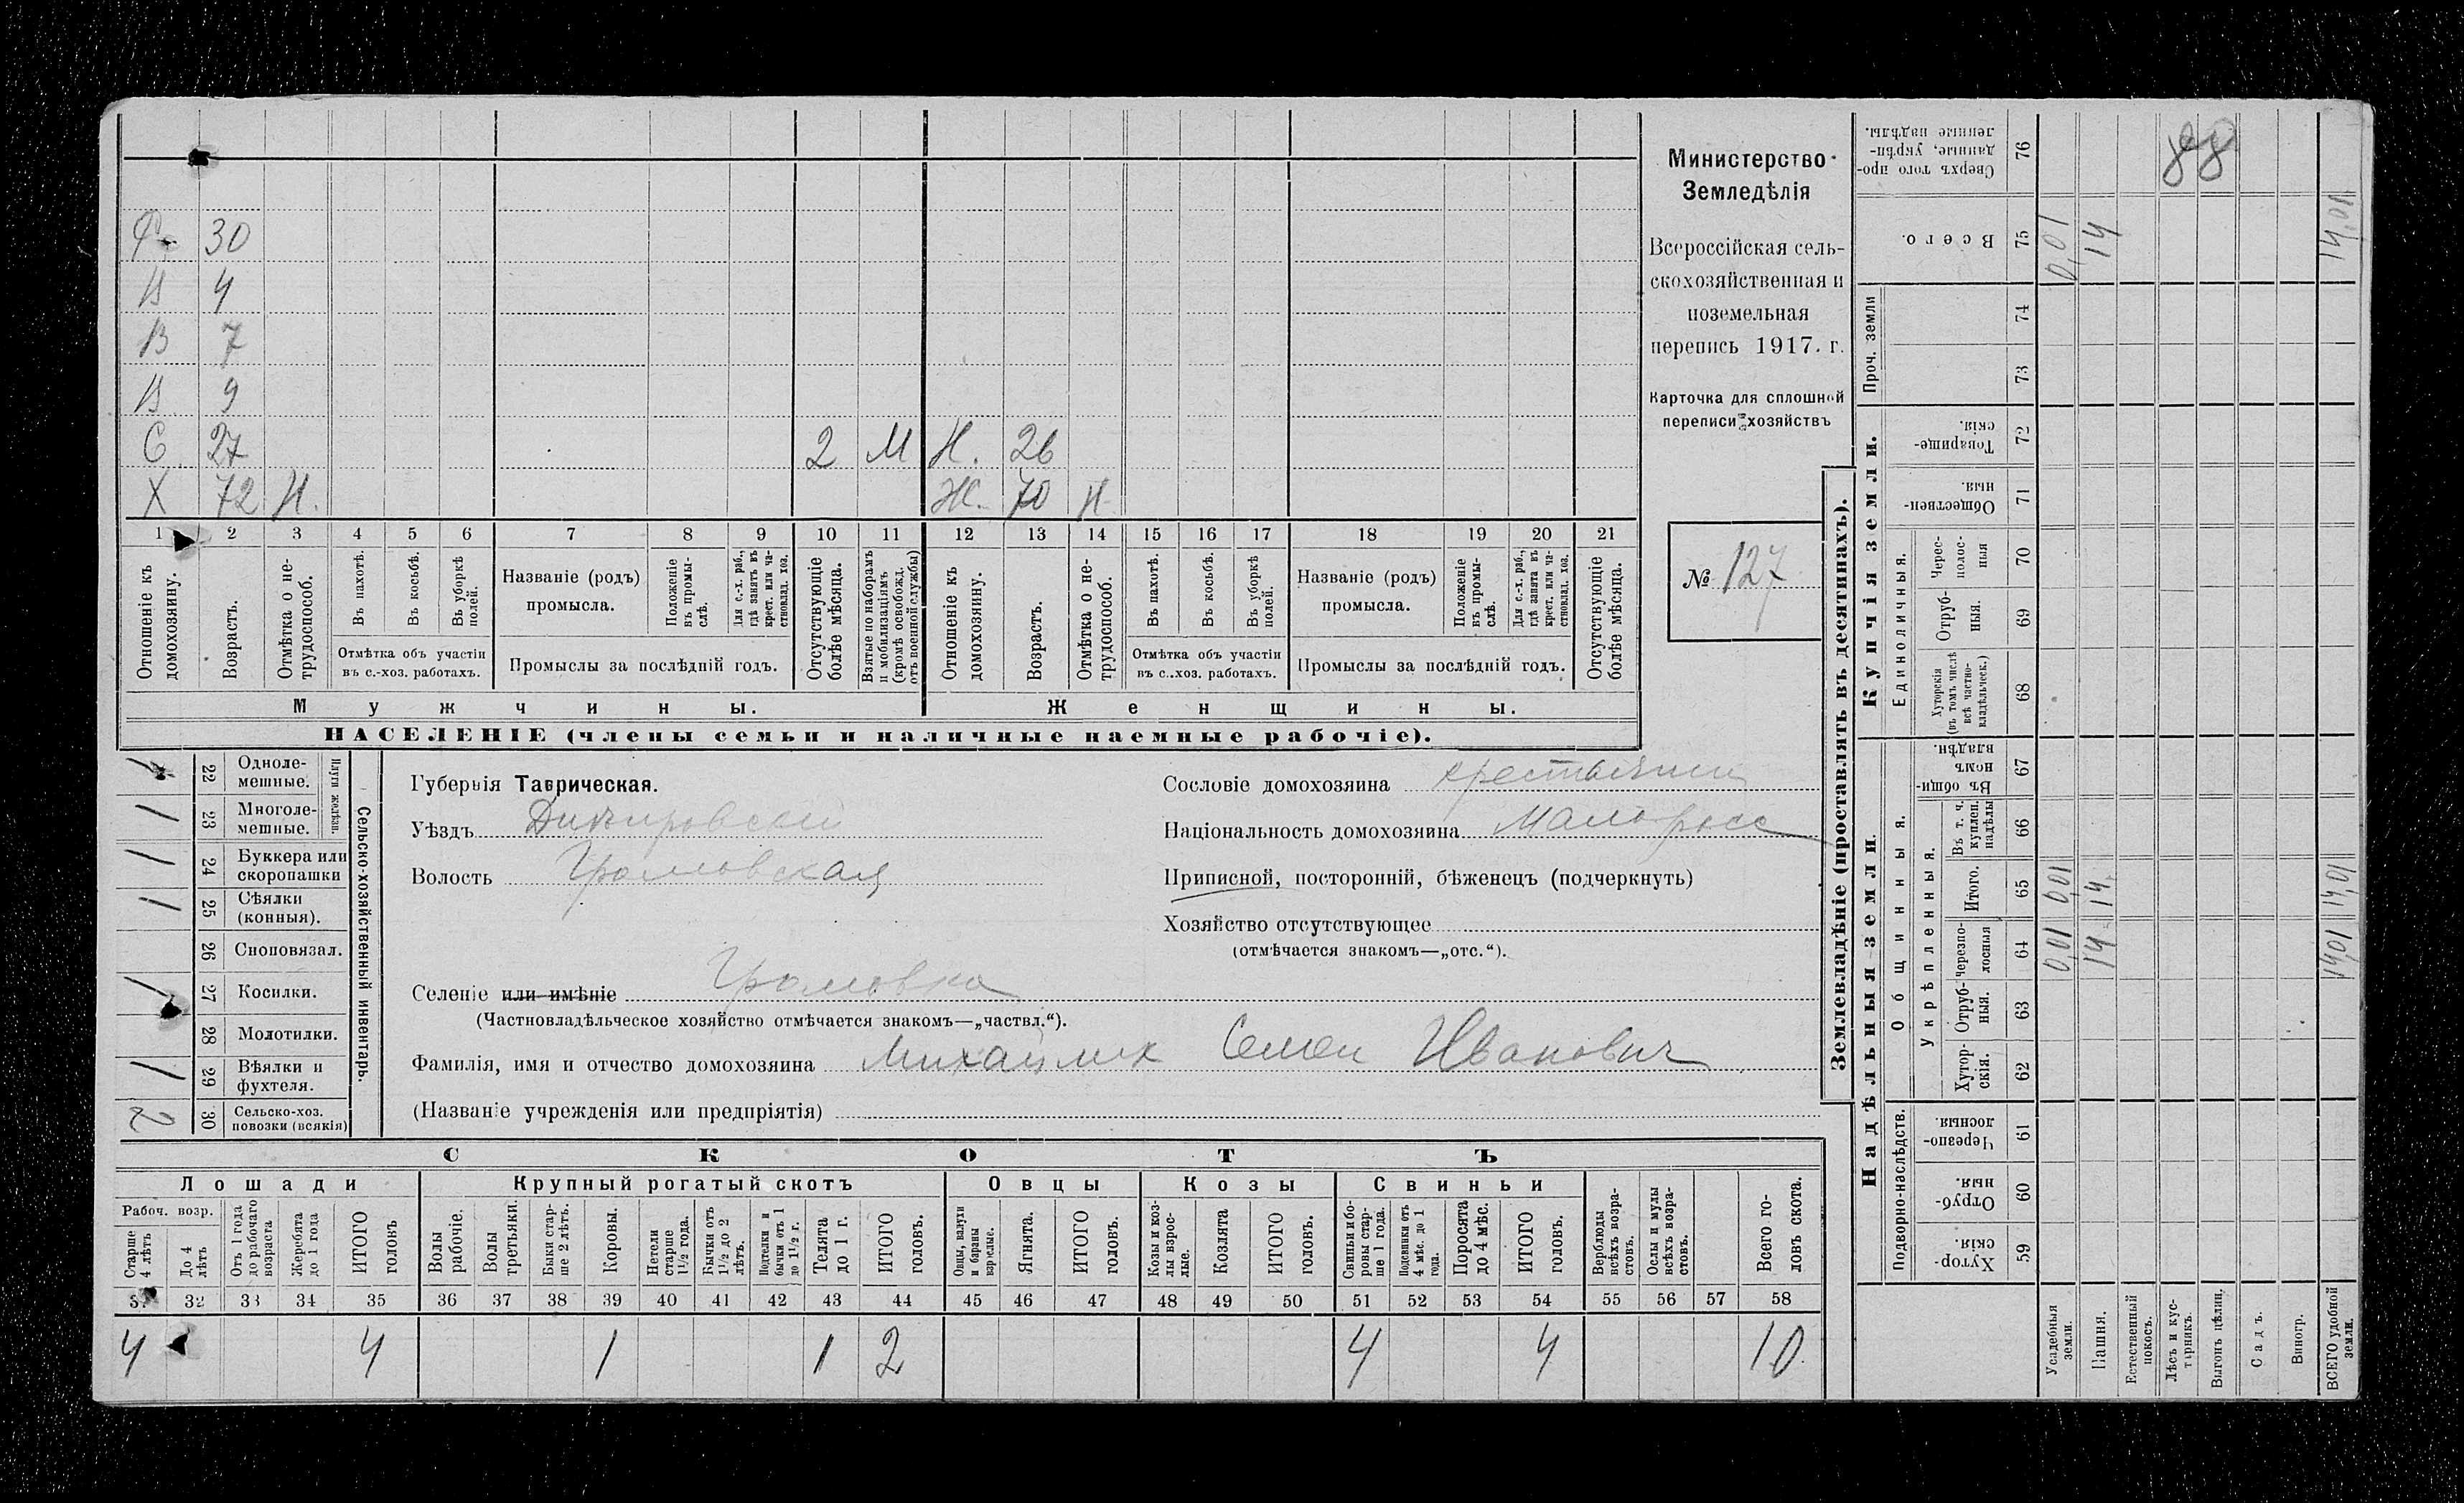 Ф. 30
В 4
В 7
В 9
С 27 2 М Н. 26
Х 72 Н. Ж. 70 Н
1 2 3 4 5 6 7 8 9 10 11 12 13 14 15 16 17 18 19 20 21
Отношеніе къ домохозяину.
Возрастъ.
Отмѣтка о не-трудоспособ.
Въ пахотѣ.
Въ косьбѣ.
Въ уборкѣ полей.
Отмѣтка объ участіи
въ с.-хоз. работахъ.
Названіе (родъ)
промысла.
Положеніе въ промы-слѣ.
Для с.-х. раб., гдѣ занятъ въ крест. или ча-стновлад. хоз.
Промыслы за послѣдній годъ.
Отсутствующіе болѣе мѣсяца.
Взятые по наборамъ и мобилизаціямъ (кромѣ освобожд. отъ военной службы)
Отношеніе къ домохозяину.
Возрастъ.
Отмѣтка о не-трудоспособ.
Въ пахотѣ.
Въ косьбѣ.
Въ уборкѣ полей.
Отмѣтка объ участіи
въ с..хоз. работахъ.
Названіе (родъ)
промысла.
Положеніе въ промы-слѣ.
Для с.-х. раб., гдѣ занята въ крест. или ча-стновлад. хоз.
Промыслы за послѣдній годъ.
Отсутствующіе болѣе мѣсяца.
Мужчины.
Женщины.
НАСЕЛЕНІЕ (члены семьи и наличные наемные рабочіе).
Министерство
Земледѣлія
Всероссійская сель-
скохозяйственная и
поземельная
перепись 1917. г.
Карточка для сплошной
переписи хозяйствъ
№ 127
Сельско-хозяйственный инвентарь.
Плуги желѣзн.
1 22 Одноле-мешные.
1 23 Многоле-мешные.
1 24 Буккера или скоропашки
1 25 Сѣялки (конныя).
26 Сноповязал.
1 27 Косилки.
28 Молотилки.
1 29 Вѣялки и фухтеля.
2 30 Сельско-хоз. повозки (всякія)
Губернія Таврическая.
Уѣздъ Днѣпровскій
Волость Громовская
Селеніе или имѣніе Громовка
(Частновладѣльческое хозяйство отмѣчается знакомъ—„частвл.“).
Фамилія, имя и отчество домохозяина Михайлик Семен Иванович
(Названіе учрежденія или предпріятія)
Сословіе домохозяина крестьянин
Національность домохозяина Малоросс
Приписной, посторонній, бѣженецъ (подчеркнуть)
Хозяйство отсутствующее
(отмѣчается знакомъ—„отс.“).
СКОТЪ
Лошади
Крупный рогатый скотъ
Овцы
Козы
Свиньи
Рабоч. возр.
Старше 4 лѣтъ
До 4 лѣтъ
Отъ 1 года до рабочаго возраста
Жеребята до 1 года
ИТОГО головъ
Волы рабочіе.
Волы третьяки.
Быки стар-ше 2 лѣтъ.
Коровы.
Нетели старше 1½ года.
Бычки отъ 1½ до 2 лѣтъ.
Подтелки и бычки отъ 1 до 1½ г.
Телята до 1 г.
ИТОГО головъ.
Овцы, валухи и бараны взрослые.
Ягнята.
ИТОГО головъ.
Козы и коз-лы взрос-лые.
Козлята
ИТОГО головъ.
Свиньи и бо-ровы стар-ше 1 года.
Подсвинки отъ 4 мѣс. до 1 года.
Поросята до 4 мѣс.
ИТОГО головъ.
Верблюды всѣхъ возра-стовъ.
Ослы и мулы всѣхъ возра-стовъ.
Всего го-ловъ скота.
31 32 33 34 35 36 37 38 39 40 41 42 43 44 45 46 47 48 49 50 51 52 53 54 55 56 57 58
4 4 1 1 2 4 4 10
Землевладѣніе (проставлять въ десятинахъ).
Надѣльныя земли.
Купчія земли.
Проч. земли
Подворно-наслѣдств.
Общинныя.
Укрѣпленныя.
Единоличныя.
Сверхъ того про-данные, укрѣп-ленные надѣлы. 76
Всего. 75
74
73
Товарище-скія. 72
Обществен-ныя. 71
Черес-полос-ныя 70
Отруб-ныя. 69
Хуторскія (въ томъ числѣ всѣ частно-владѣльческ.) 68
Въ общин-номъ владѣн. 67
Въ т. ч. куплен. надѣлы 66
Итого. 65
Черезпо-лосныя 64
Отруб-ныя. 63
Хутор-скія. 62
Черезпо-лосныя. 61
Отруб-ныя. 60
Хутор-скія. 59
Усадебныя земли. 0,01 0,01 0,01
Пашня. 14 14 14
Естественный покосъ.
Лѣсъ и кус-тарникъ.
Выгонъ цѣлин.
Садъ.
Виногр.
ВСЕГО удобной земли. 14,01 14,01 14,01